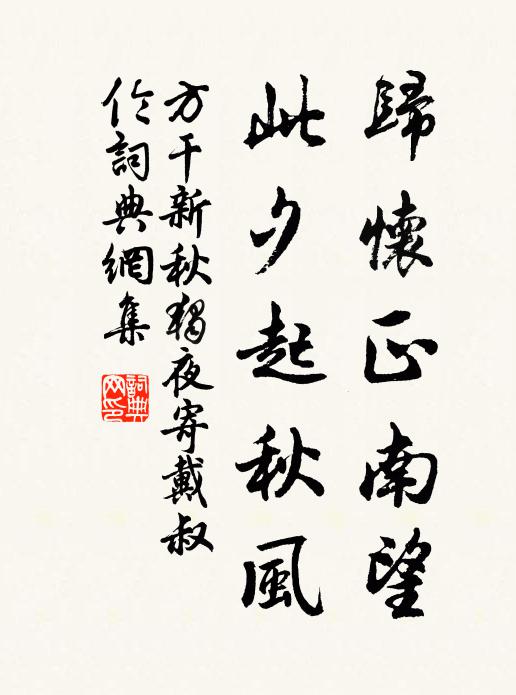 歸懷正南望
此夕起秋風
方干新秋獨夜寄戴叔
伦詞典網集
詞典
网印